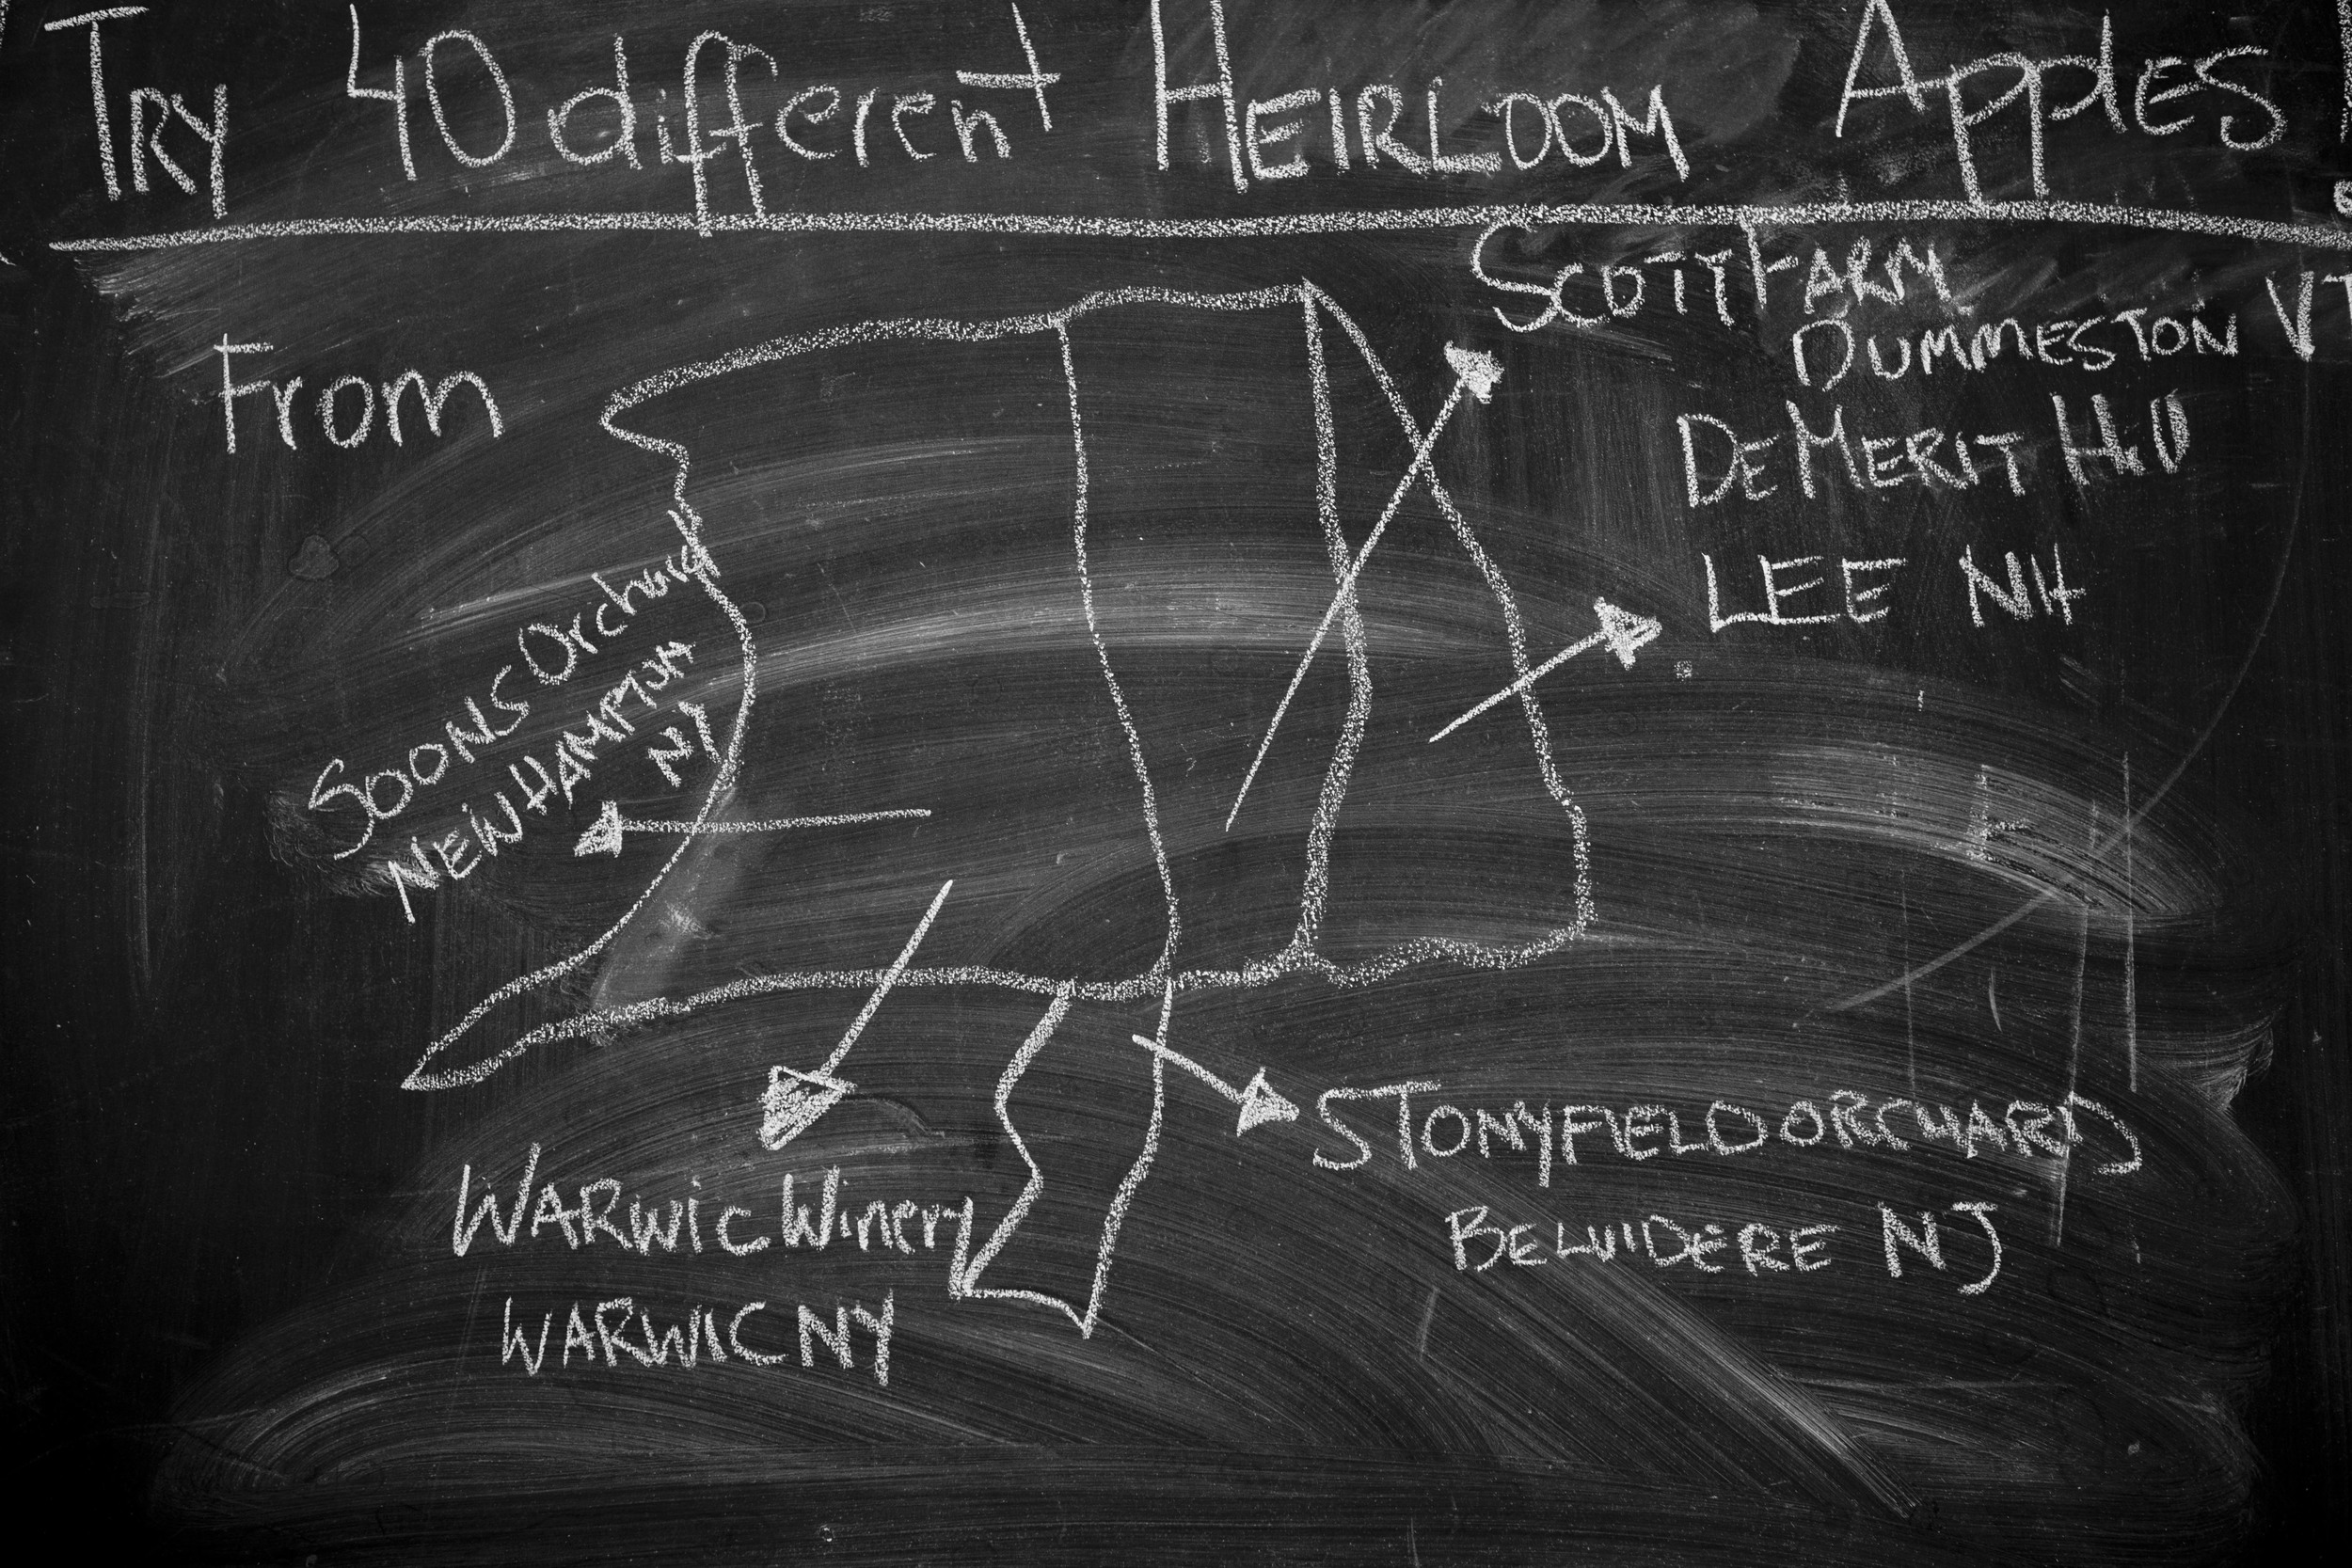 Try 40 different Heirloom Apples
From
Scott Farm
Dummeston VT
DeMerit Hill
LEE NH
Soons Orchard
New Hampton
NY
Warwic Winery
Warwic NY
Stonyfield Orchard
Belvidere NJ